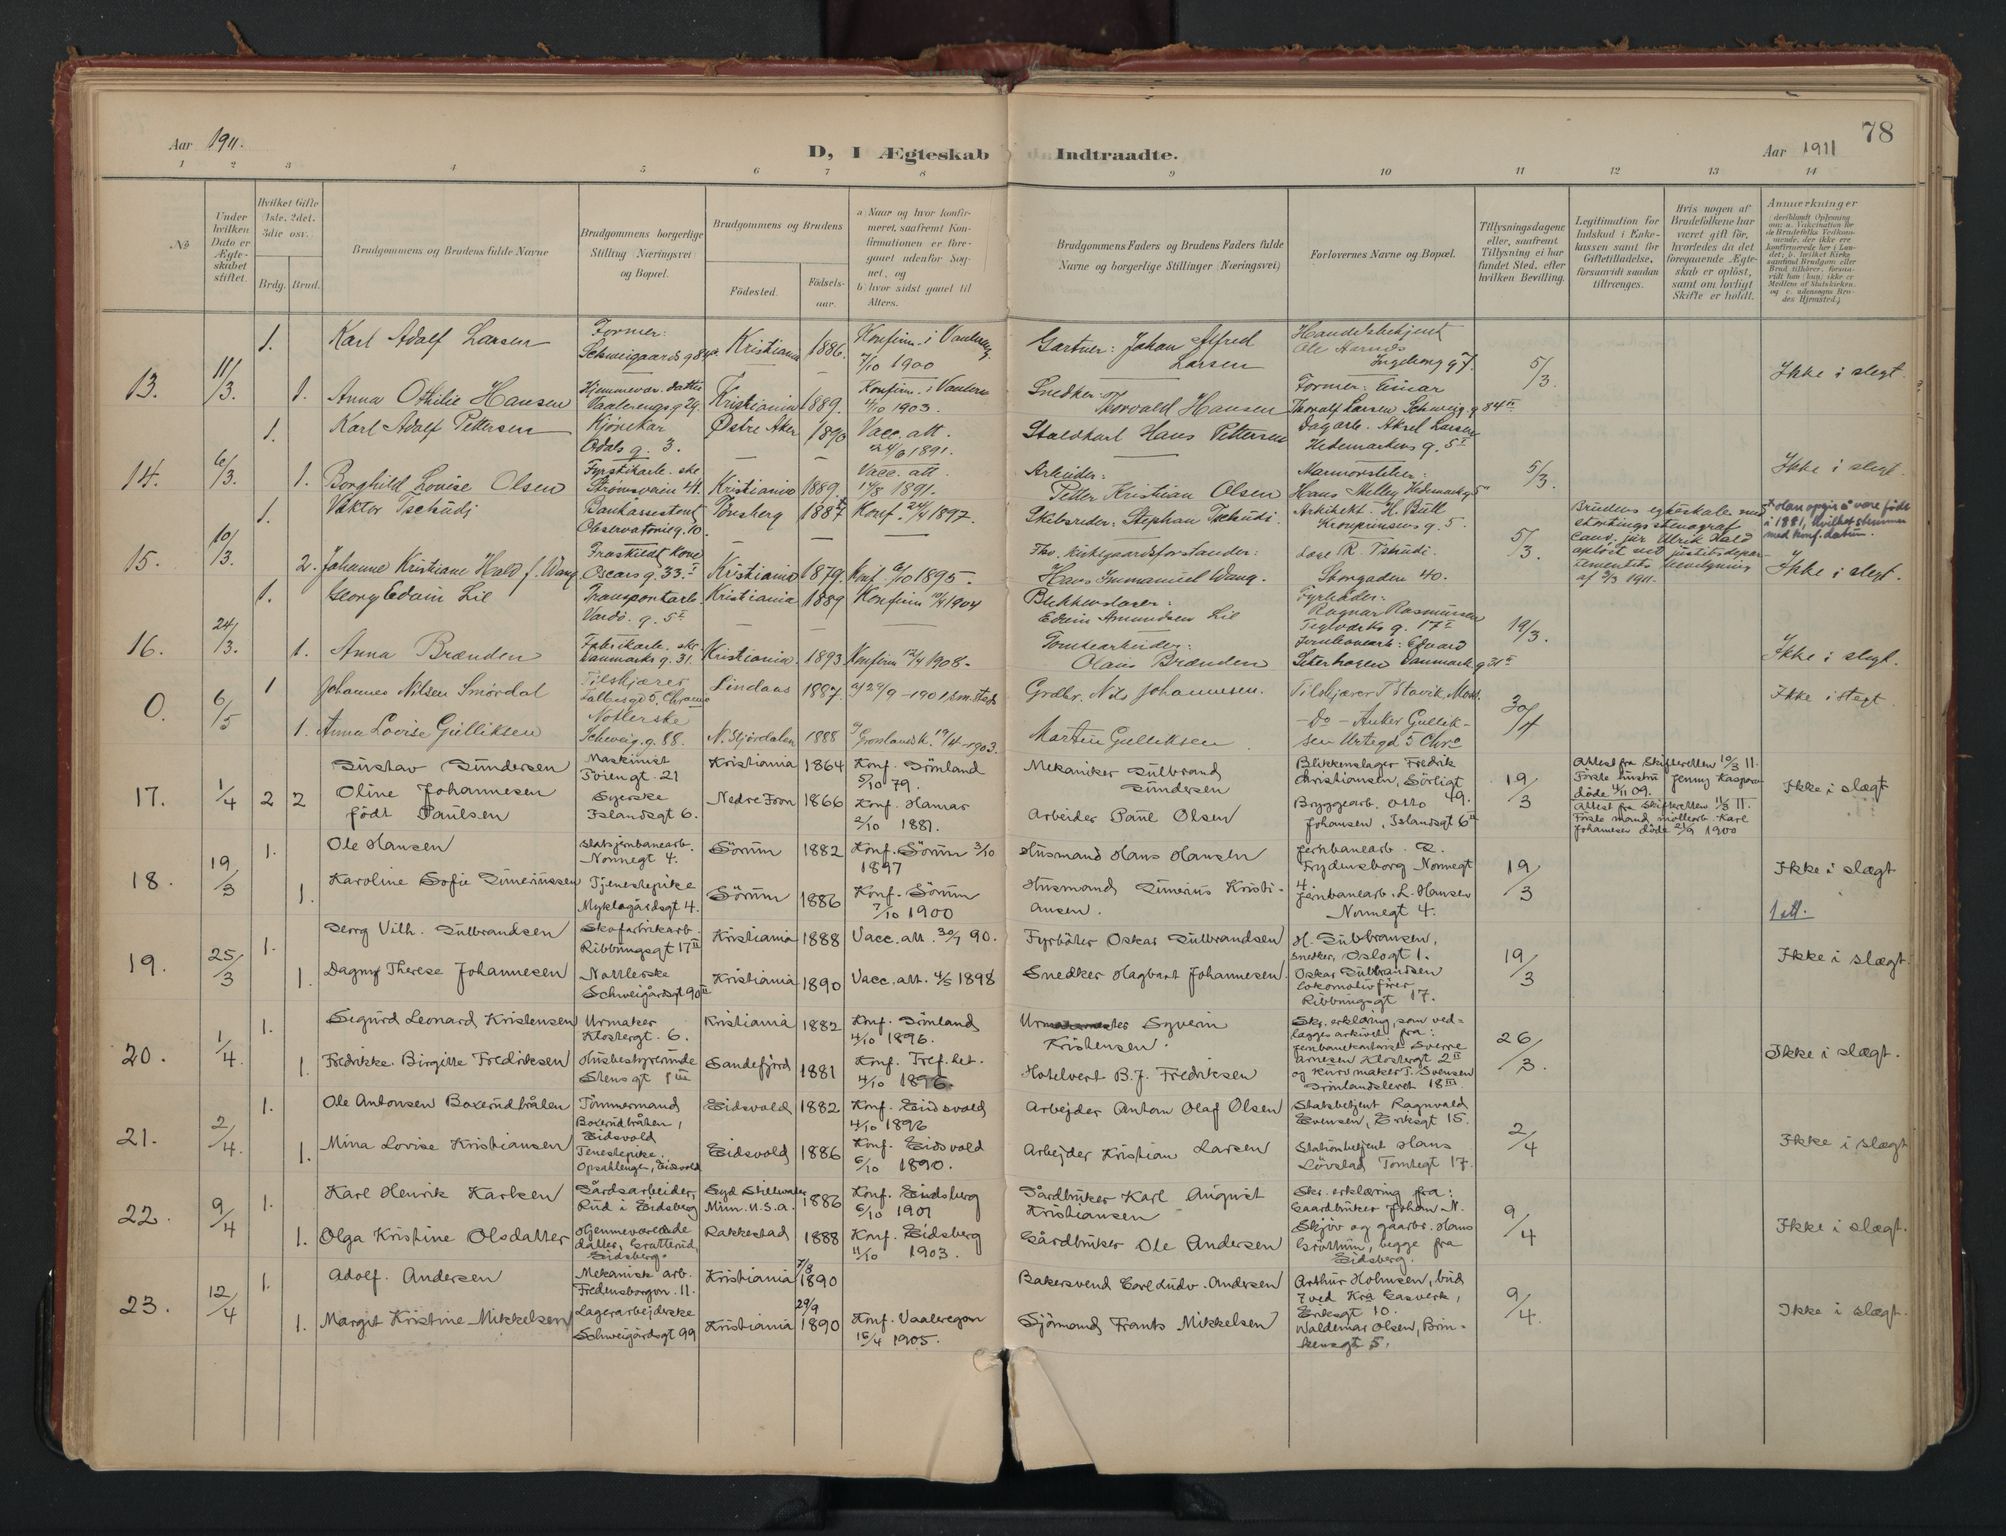 78
Aar 1911.
D, I Ægteskab Indtraadte.
Aar 1911
1 2 3 4 5 6 7 8 9 10 11 12 13 14
No
Under hvilken Dato er Ægteskabet stiftet.
Hvilket Gifte (1ste, 2det, 3die osv.
Brdg. Brud.
Brudgommens og Brudens fulde Navne
Brudgommens borgerlige Stilling (Næringsvei) og Bopæl.
Brudgommens og Brudens
Fødested.
Fødselsaar.
a) Naar og hvor konfirmeret, saafremt Konfirmationen er foregaaet udenfor Sognet, og
b) hvor sidst gaaet til Alters.
Brudgommens Faders og Brudens Faders fulde Navne og borgerlige Stillinger (Næringsvei)
Forlovernes Navne og Bopæl.
Tillysningsdagene eller, saafremt Tillysning ei har fundet Sted, efter hvilken Bevilling.
Legitimation for Indskud i Enkekassen samt for Giftetilladelse, forsaavidt saadan tiltrænges.
Hvis nogen af Brudefolkene har været gift før, hvorledes da det foregaaende Ægteskab er opløst, samt om lovligt Skifte er holdt.
Anmerkninger
13. 11/3
1. Karl Adolf Larsen
Former:
Kristiania 1886.
Konfirm. i Vaalereng 7/10 1900
Gartner: Johan Alfred Larsen
Handelsbetjent
Ole
5/3
Ikke i slegt.
1. Anna Othilie Hansen
Hjemmevær. datter
Vaalerengs g 29.
Kristiania 1889.
Konfirm. i Vaaleren 4/10 1903.
Snedker: Thorvald Hansen
Former: Einar Thoralf Larsen Schweig. g 84 II
14. 6/3
1. Karl Adolf Pettersen
Kjörekar
Odals g. 3.
Østre Aker 1890
Vacc. att. 1891.
Staldkarl Hans Pettersen
Dagarb. Aksel Larsen
Hedemarkens g. 5 I
5/3.
Ikke i slegt.
1. Borghild Lovise Olsen
Fyrstikarb. ske
Strömsveien 41.
Kristiania 1889.
Vacc. att. 14/8 1891.
Arbeider: Petter Kristian Olsen
Hans
15. 10/3
1. Viktor Tschudi
Bankassistent
Observatorieg. 10.
Tönsberg 1887
Konf. 24/4 1897.
Skibsreder: Stephan Tschudi.
Arkitekt. H. Bull
Kronprinsens g. 5.
5/3.
Brudens egteskab med stortingsstenograf Cand. jur Ulrik Hald oplöst ved justitsdepartementets bevilgning af 3/3 1911.
x Han opgir å være född i 1881, hvilket stemmer med konf. datum.
2. Johanne Kristiane Hald f. Wang
Fraskildt kone
Oscars g. 33. I
Kristiania 1879.
Konf. 6/10 1895.
Fhv. kirkegaardsforstander:
Hans Immanuel Wang.
Læge R. Tschudi.
Storgaden 40.
Ikke i slegt.
16. 24/3.
1. Georg Edvin Lie
Transportarb.
Vardö. g. 5 I
Kristiania 1889
Konfirm 1904
Blikkenslager:
Edvin Amundsen Lie
Fyrböder:
Ragnar Rasmussen
Teglverks g. 17 I
19/3.
1. Anna Brænden
Fabrikarb. ske
Danmarks g. 31.
Kristiania 1893
Konfirm 12/4 1908.
Tomtearbeider:
Olaus Brænden
Jernbanearb: Edvard Seterhagen Danmark g 31 II
Ikke i slegt.
0. 6/5
1 Johannes Nilsen Smördal
Tilskjærer
Lindaas 1887.
Grdbr. Nils Johannesen.
Tilskjærer
30/4
Ikke i slegt.
1. Anna Lovise Gulliksen
Notlerske
Schweig. g. 88.
N. Stjördalen 1888
Grønlands k. 19/4 1903.
Martin Gulliksen
Do - Anker Gulliksen Urtegd 5 Chra
17. 1/4
2 Gustav Gundersen
Maskinist
Töiengt. 21
Kristiania 1864
Konf. Grönland 5/10 79.
Mekaniker Gulbrand Gundersen
Blikkenslager Fredrik Christiansen, Sörligt 49.
19/3
Attest fra Skifteretten 10/3 11.
Förste hustru Jenny Kaspara döde 4/11 09.
Attest fra Skifteretten 11/3 11.
Förste mand, møllearb. Karl Johannesen döde 21/9 1900
Ikke i slægt
2 Oline Johannesen född Paulsen
Syerske
Islandsgt 6.
Nedre Fron 1866
Konf. Hamar 2/10 1881.
Arbeider Paul Olsen
Bryggearb. Otto Johansen, Islandsgt 6 II
18. 19/3
1. Ole Hansen
Statsjernbanearb.
Normegt 4.
Sörum 1882
Konf. Sörum 3/10 1897
Husmand Hans Hansen
Jernbanearb. O. Frydensborg Normegt 4.
19/3
Ikke i slægt
1. Karoline Sofie Simeniussen
Tjenestepike
Myklagårdsgt 4.
Sörum 1886
Konf. Sörum 7/10 1900
Husmand Simenius Kristiansen.
Jernbanearb. L. Hansen Normegt 4.
1 att.
19. 25/3
1. Georg Vilh. Gulbrandsen
Skofabrikarb.
Ribbungsgt 17 II
Kristiania 1888
Vacc. att. 30/7 90.
Fyrböter Oskar Gulbrandsen
H. Gulbransen, snedker, Oslogt 1.
19/3
Ikke i slægt.
1. Dagny Therese Johannesen
Notlerske
Schweigårdsgt 90 II
Kristiania 1890
Vacc. att. 4/5 1898
Snedker Hagbart Johannesen
Oskar Gulbrandsen lokomotivfører Ribbungsgt 17.
20. 1/4
1. Sigurd Leonard Kristensen
Urmaker
Klostergt. 6.
Kristiania 1882
Konf. Grönland 4/10 1896.
Syverin Kristensen.
Skr. erklæring, som vedlægges arkivet fra:
Jernbanekontorist Sverre Arnesen Klostergt 2 II
og Kurvmaker T. Svensen Grönlandsleret 18 III
26/3.
Ikke i slægt.
1. Fredrikke Birgitte Fredriksen
Husbestyrerinde
Stensgt 1 III
Sandefjord 1881
Konf. Tref. het. 4/10 1896.
Hotelvert B. J. Fredriksen
21. 2/4.
1. Ole Antonsen Boxerudbråten
Tömmermand
Boxerudbråten,
Eidsvold
Eidsvold 1882
Konf. Eidsvold 4/10 1896
Arbejder Anton Olaf Olsen
Statsbetjent Ragnvald Evensen, Eriksgt 15.
2/4
Ikke i slægt
1. Mina Lovise Kristiansen
Tenestepike
Opsahlengen, Eidsvold
Eidsvold 1886
Konf. Eidsvold 6/10 1890.
Arbejder Kristian Larsen
Stationsbetjent Hans Lövstad Tomtegt 17.
22. 9/4
1. Karl Henrik Karlsen
Gårdsarbeider,
Rud i Eidsberg
Syd Stillwater Minn. U.S.a. 1886
Konf. Eidsberg 6/10 1901
Gårdbruker Karl August Kristiansen
Skr. erklæring fra:
Gaardbruker Johan N. Skjør og gaarbr. Hans Gröttum, begge fra Eidsberg.
9/4
Ikke i slægt.
1. Olga Kristine Olsdatter
Hjemmeværende datter, Grutterud, Eidsberg.
Rakkestad 1888
Konf. Eidsberg 11/10 1903.
Gårdbruker Ole Andersen
23. 12/4
1. Adolf. Andersen
Mekanisk arb.
Fredensborgvn. 11.
Kristiania 7/8 1890
Bakersvend Carl Ludv. Andersen
Arthur Holmsen, bud ved Kra Gasverk, Eriksgt 10.
9/4.
Ikke i slægt.
1. Margit Kristine Mikkelsen
Lagerarbejderske
Schweigårdsgt 99
Kristiania 29/9 1890
Konf. Vaalerengen 15/4 1905.
Sjömand Frants Mikkelsen
Waldemar Olsen, Brinkensgt 5.